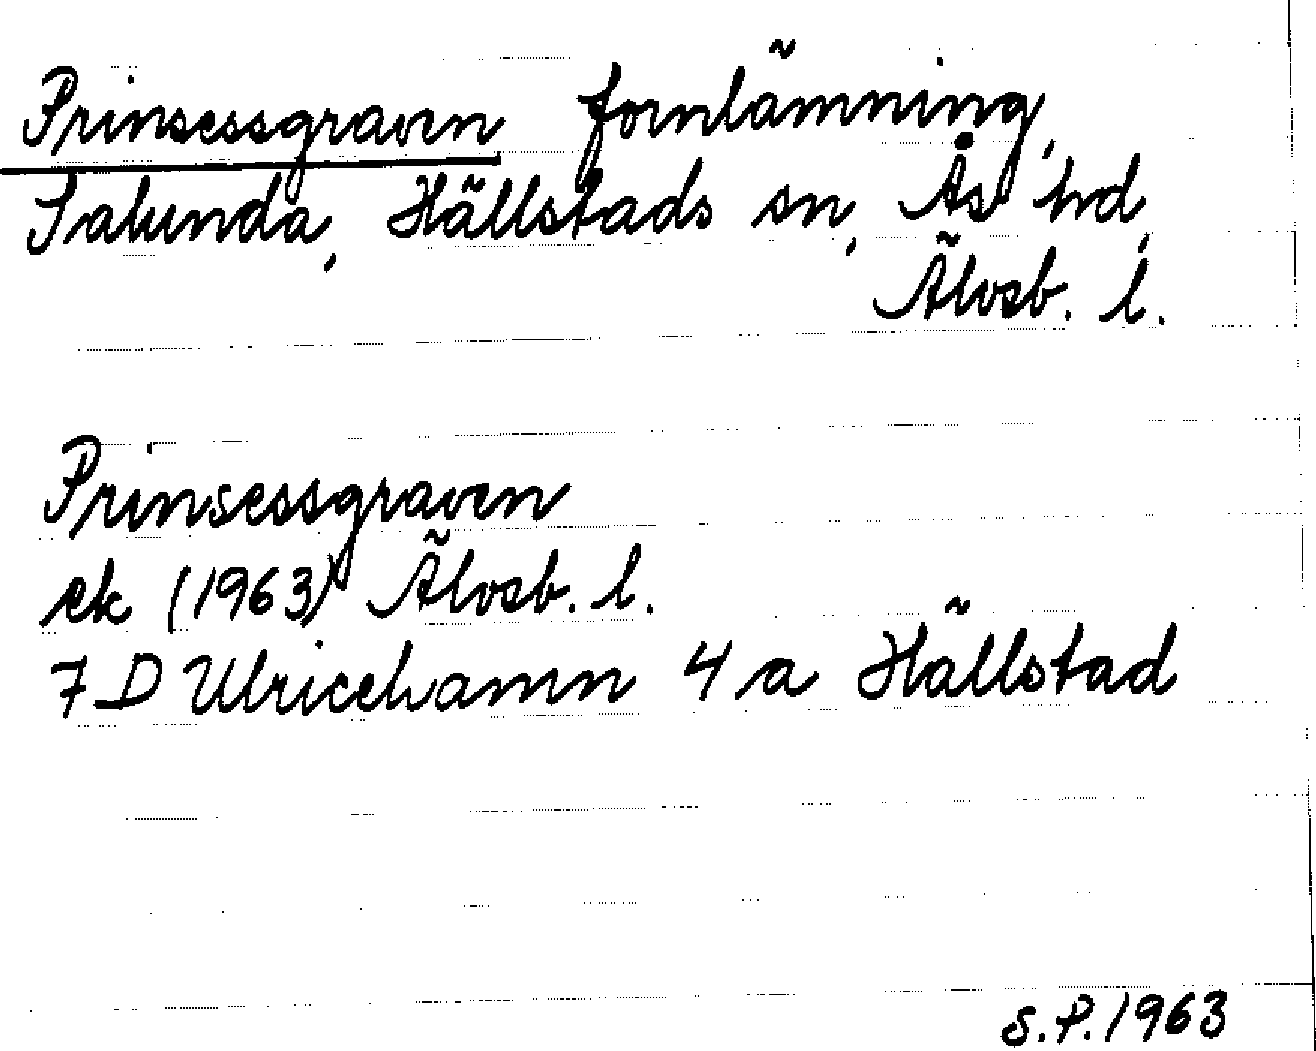 Prinsessgraven fornlämning,
Salunda, Hällstads sn, Ås hd,
Älvsb. l.
Prinsessgraven
ek (1963) Älvsb. l.
7 D Ulricehamn 4 a Hällstad
S.P. 1963